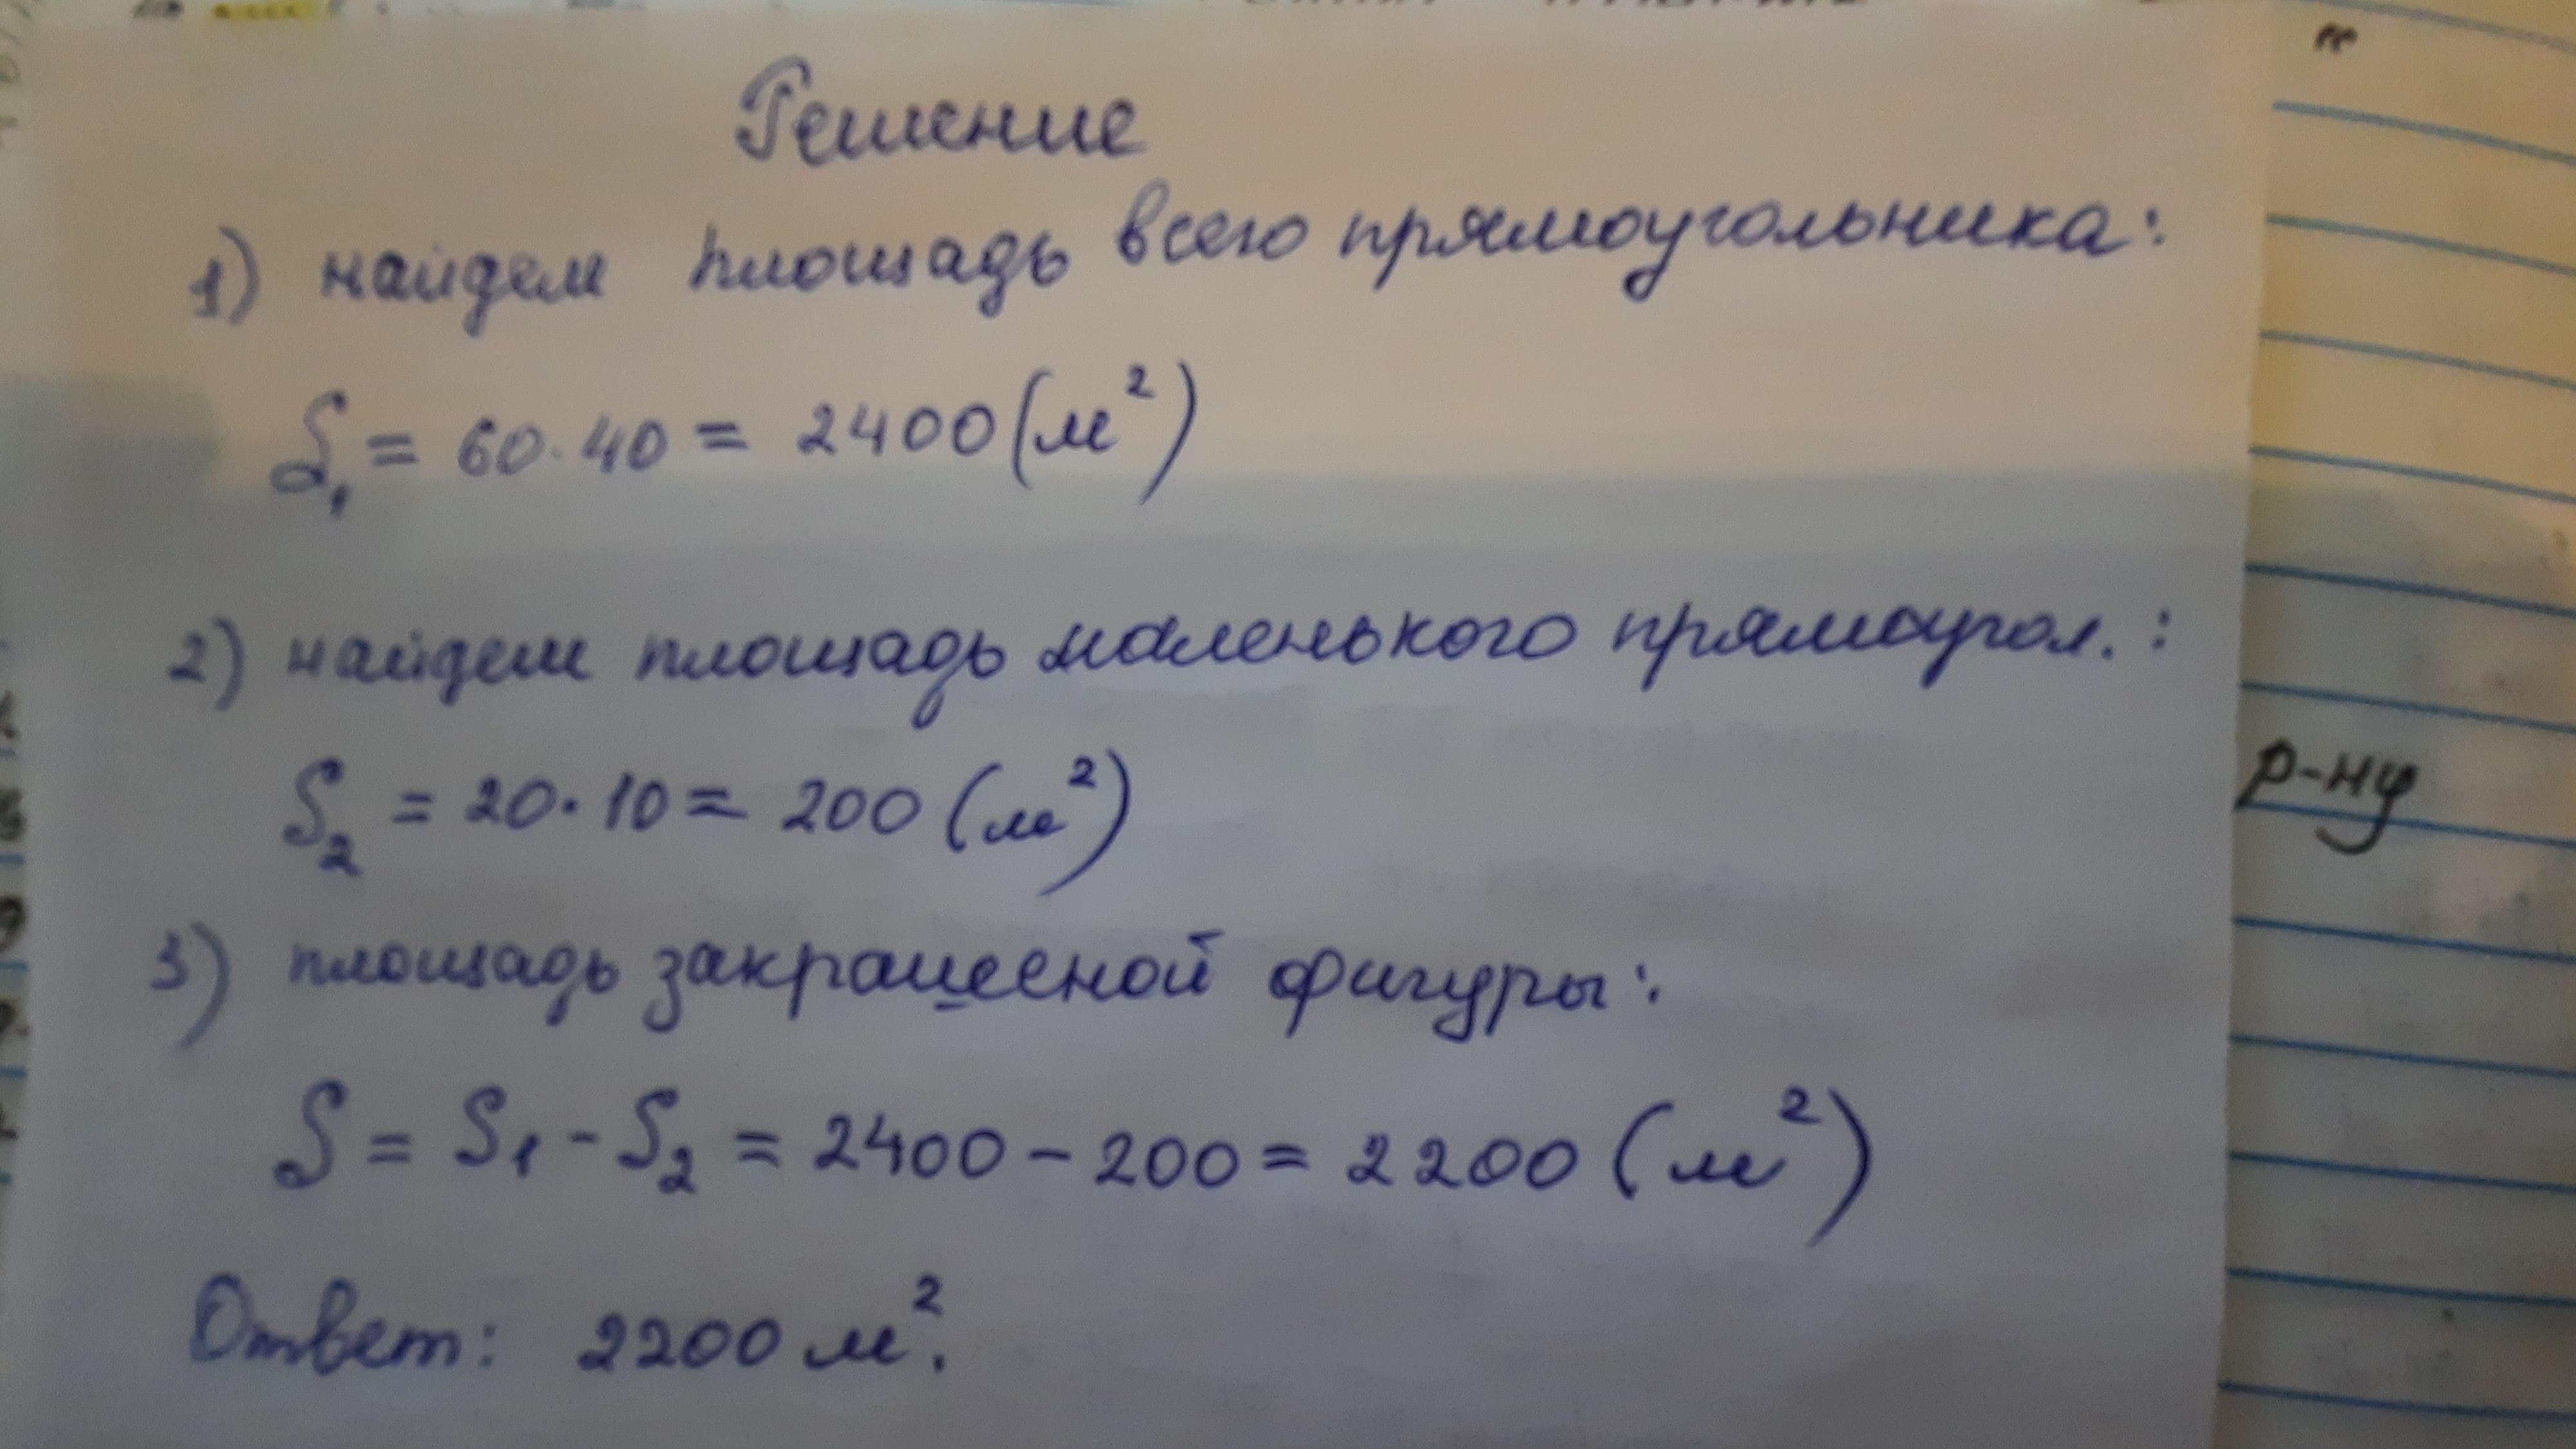 Решение
1) найдем площадь всего прямоугольника:
S₁ = 60 · 40 = 2400 (м²)
2) найдем площадь маленького прямоугол. :
S₂ = 20 · 10 = 200 (м²)
р-ну
3) площадь закрашеной фигуры:
S = S₁ - S₂ = 2400 - 200 = 2200 (м²)
Ответ: 2200 м².